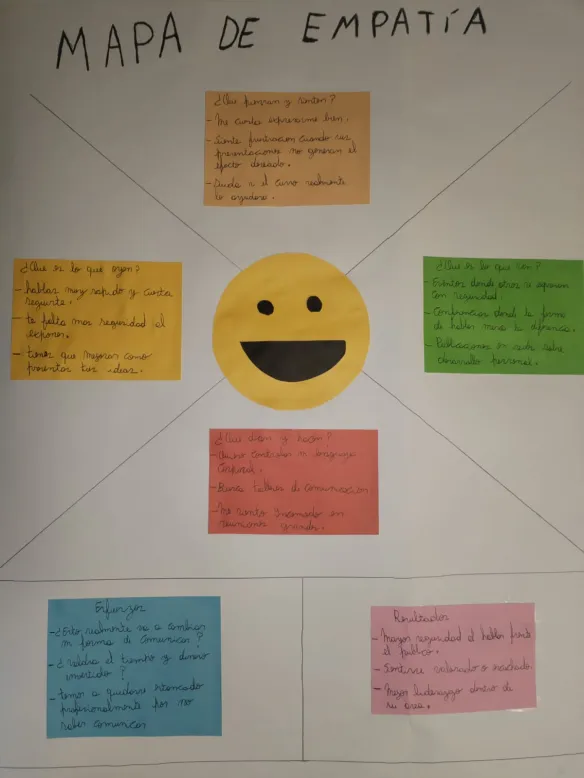 MAPA DE EMPATÍA
¿Que piensan y sienten?
- Me cuesta expresarme bien.
- Siente frustracion cuando sus
presentaciones no generan el
efecto deseado.
- Duda si el curso realmente
lo ayudara.
¿Que es lo que oyen?
- hablas muy rapido y cuesta
seguirte.
- te falta mas seguridad al
exponer.
- tienes que mejorar como
presentas tus ideas.
¿Que es lo que ven?
- Eventos donde otros se expresan
con seguridad.
- Conferencias donde la forma
de hablar marca la diferencia.
- Publicaciones en redes sobre
desarrollo personal.
¿Que dicen y hacen?
- Quiero controlar mi lenguaje
corporal.
- Busca talleres de comunicacion
- Me siento incomodo en
reuniones grandes.
Esfuerzos
- ¿Esto realmente va a cambiar
mi forma de comunicar?
- ¿Valdra el tiempo y dinero
invertido?
- temor a quedarse estancado
profesionalmente por no
saber comunicar
Resultados
- Mayor seguridad al hablar frente
al publico.
- Sentirse valorado y escuchado
- Mejor liderazgo dentro de
su area.